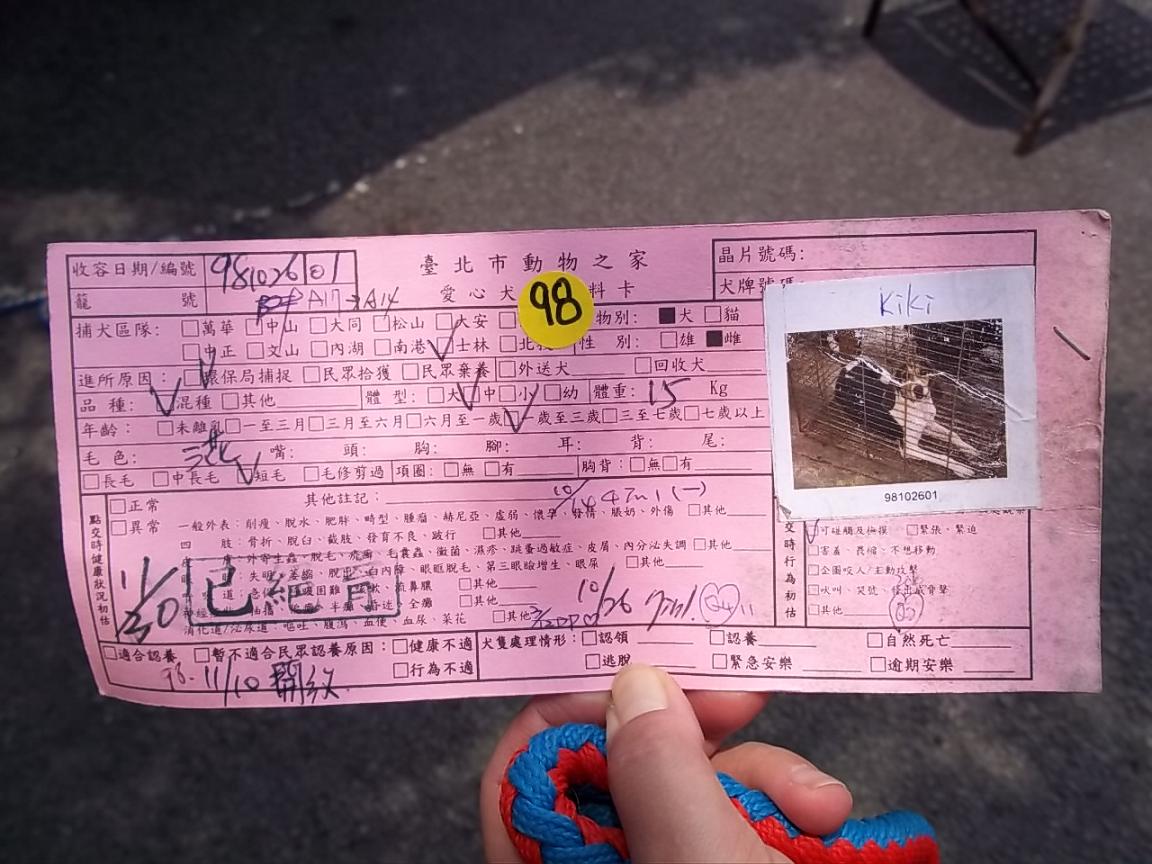 收容日期/編號 98102601
臺北市動物之家
晶片號碼:
籠號 A17→A14
愛心犬 料卡
犬牌號碼:
98
Kiki
捕犬區隊: 萬華 中山 大同 松山 大安 物別: 犬 貓
中正 文山 內湖 南港 士林 北投 性別: 雄 雌
進所原因: 環保局捕捉 民眾拾獲 民眾棄養 外送犬 回收犬
品種: 混種 其他 體型: 大 中 小 幼 體重: 15 Kg
年齡: 未離乳 一至三月 三月至六月 六月至一歲 一歲至三歲 三至七歲 七歲以上
毛色: 三花 嘴: 頭: 胸: 腳: 耳: 背: 尾:
長毛 中長毛 短毛 毛修剪過 項圈: 無 有 胸背: 無 有
98102601
點交時健康狀況初估
正常 其他註記:
異常 一般外表: 削瘦、脫水、肥胖、畸型、腫瘤、赫尼亞、虛弱、懷孕、發情、脹奶、外傷 其他
四肢: 骨折、脫臼、截肢、發育不良、跛行 其他
皮膚: 外寄生蟲、脫毛、疣瘤、毛囊蟲、黴菌、濕疹、跳蚤過敏症、皮屑、內分泌失調 其他
眼睛: 失明、萎縮、脫出、白內障、眼眶脫毛、第三眼瞼增生、眼屎 其他
呼吸道: 呼吸困難、咳嗽、流鼻膿 其他
全癱 其他
消化道/泌尿道: 嘔吐、腹瀉、血便、血尿、菜花 其他
已絕育
11/30
10/14
10/26
交時行為初估
可碰觸及撫摸 緊張、緊迫
害羞、畏縮、不想移動
企圖咬人/主動攻擊
吠叫、哭號、發出威脅聲
其他
適合認養 暫不適合民眾認養原因: 健康不適 犬隻處理情形: 認領 認養 自然死亡
行為不適 逃脫 緊急安樂 逾期安樂
98.11/10 開放